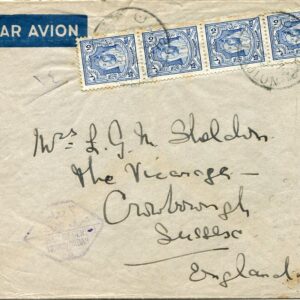 AR AVION
Mrs L. G. M. Sheldon
The Vicarage
Crowborough
Sussex
England